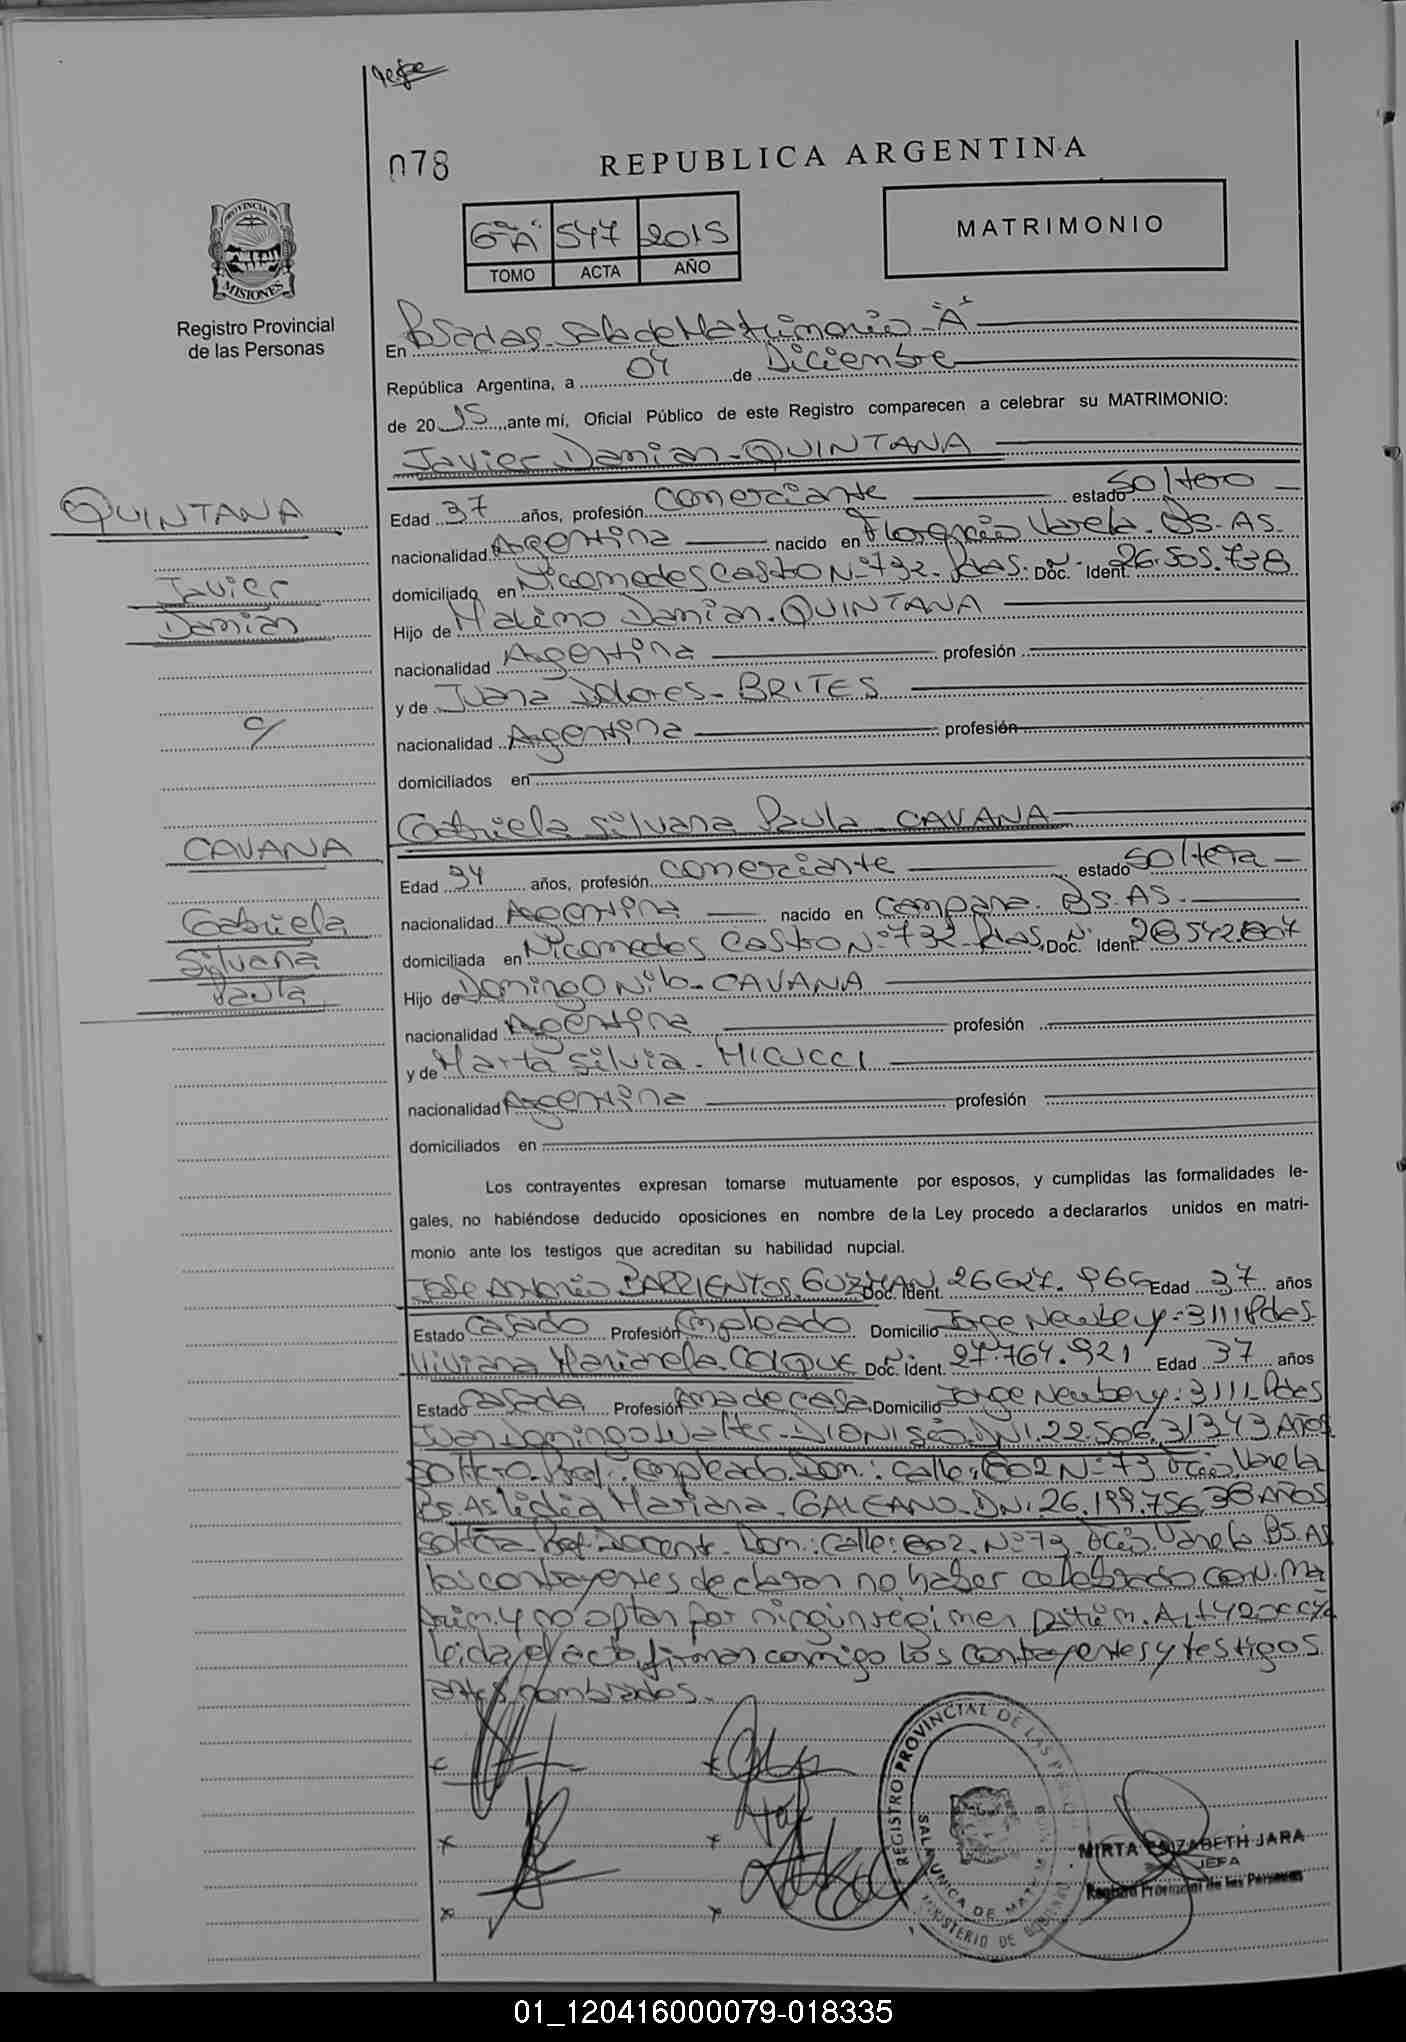 078
REPUBLICA ARGENTINA
PROVINCIA DE
MISIONES
Registro Provincial
de las Personas
6º"A" 547 2015
TOMO ACTA AÑO
MATRIMONIO
En Posadas. Sala de Matrimonio - "A"
República Argentina, a 04 de Diciembre
de 2015, ante mí, Oficial Público de este Registro comparecen a celebrar su MATRIMONIO:
Javier Damian - QUINTANA
QUINTANA
Javier
Damian
c/
CAVANA
Gabriela
Silvana
Paula
Edad 37 años, profesión comerciante estado soltero
nacionalidad Argentina nacido en Florencio Varela. BS. AS.
domiciliado en Nicomedes Castro Nº 732. Pdas. Doc. Ident. 26.505.738
Hijo de Maximo Damian. QUINTANA
nacionalidad Argentina profesión
y de Juana Dolores - BRITES
nacionalidad Argentina profesión
domiciliados en
Gabriela Silvana Paula - CAVANA
Edad 34 años, profesión comerciante estado soltera
nacionalidad Argentina nacido en Campana. BS. AS.
domiciliada en Nicomedes Castro Nº 732. Pdas. Doc. Ident. 28.542.807
Hijo de Domingo Nilo - CAVANA
nacionalidad Argentina profesión
y de Marta Silvia. MICUCCI
nacionalidad Argentina profesión
domiciliados en
Los contrayentes expresan tomarse mutuamente por esposos, y cumplidas las formalidades le-
gales, no habiéndose deducido oposiciones en nombre de la Ley procedo a declararlos unidos en matri-
monio ante los testigos que acreditan su habilidad nupcial.
Jose Antonio BARRIENTOS. GUZMAN Doc. Ident. 26627.966 Edad 37 años
Estado casado Profesión Empleado Domicilio Jorge Newbery - 3111 Pdas.
Viviana Marianela. COLQUE Doc. Ident. 27.764.921 Edad 37 años
Estado casada Profesión Ama de casa Domicilio Jorge Newbery: 3111 Pdas
Juan Domingo Walter - DIONISIO. DNI. 22.506.313 43 Años
soltero. Prof.: empleado. Dom.: calle: 802 Nº 73 Varela
Bs. As Lidia Mariana. GALEANO. DNI. 26.199.756 38 Años
soltera Prof. Docente. Dom.: calle: 802. Nº 73. Varela BS. AS
los contrayentes declaran no haber celebrado conv. Ma
trim. y no optan por ningun regimen patrim. Art 420 CCyC
leida el acta, firman conmigo los contrayentes y testigos
antes nombrados.
REGISTRO PROVINCIAL DE LAS PERSONAS
SALA UNICA DE MATRIMONIO
MINISTERIO DE GOBIERNO
MIRTA ELIZABETH JARA
JEFA
Registro Provincial de las Personas
01_120416000079-018335